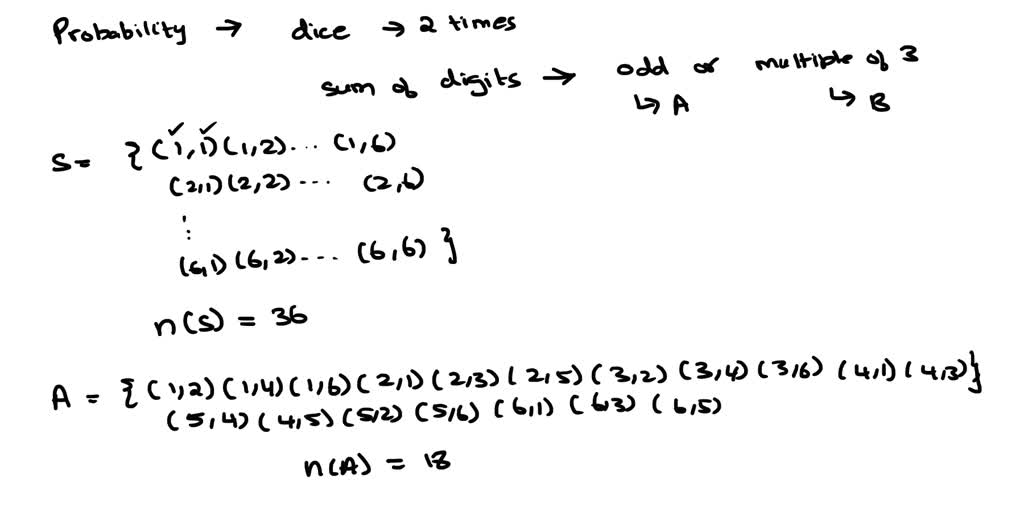 Probability → dice → 2 times
sum of digits → odd or multiple of 3
↳ A ↳ B
S = { (1,1) (1,2) ... (1,6)
(2,1) (2,2) ... (2,6)
⋮
(6,1) (6,2) ... (6,6) }
n(S) = 36
A = { (1,2) (1,4) (1,6) (2,1) (2,3) (2,5) (3,2) (3,4) (3,6) (4,1) (4,3) }
(5,4) (4,5) (5,2) (5,6) (6,1) (6,3) (6,5)
n(A) = 18